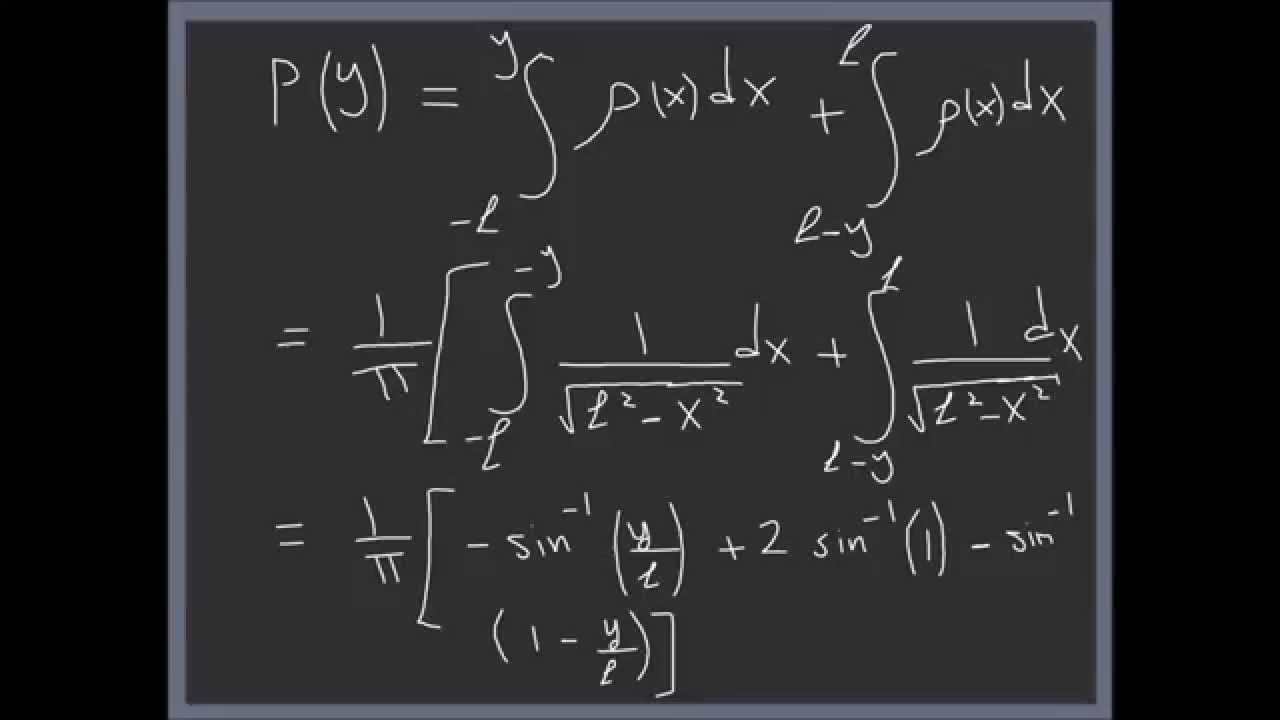 P(y) = ∫_{-ℓ}^{y} ρ(x) dx + ∫_{ℓ-y}^{ℓ} ρ(x) dx
= 1/π [ ∫_{-ℓ}^{-y} 1/√(ℓ² - x²) dx + ∫_{ℓ-y}^{ℓ} 1/√(ℓ² - x²) dx
= 1/π [ - sin⁻¹ (y/ℓ) + 2 sin⁻¹ (1) - sin⁻¹
(1 - y/ℓ) ]